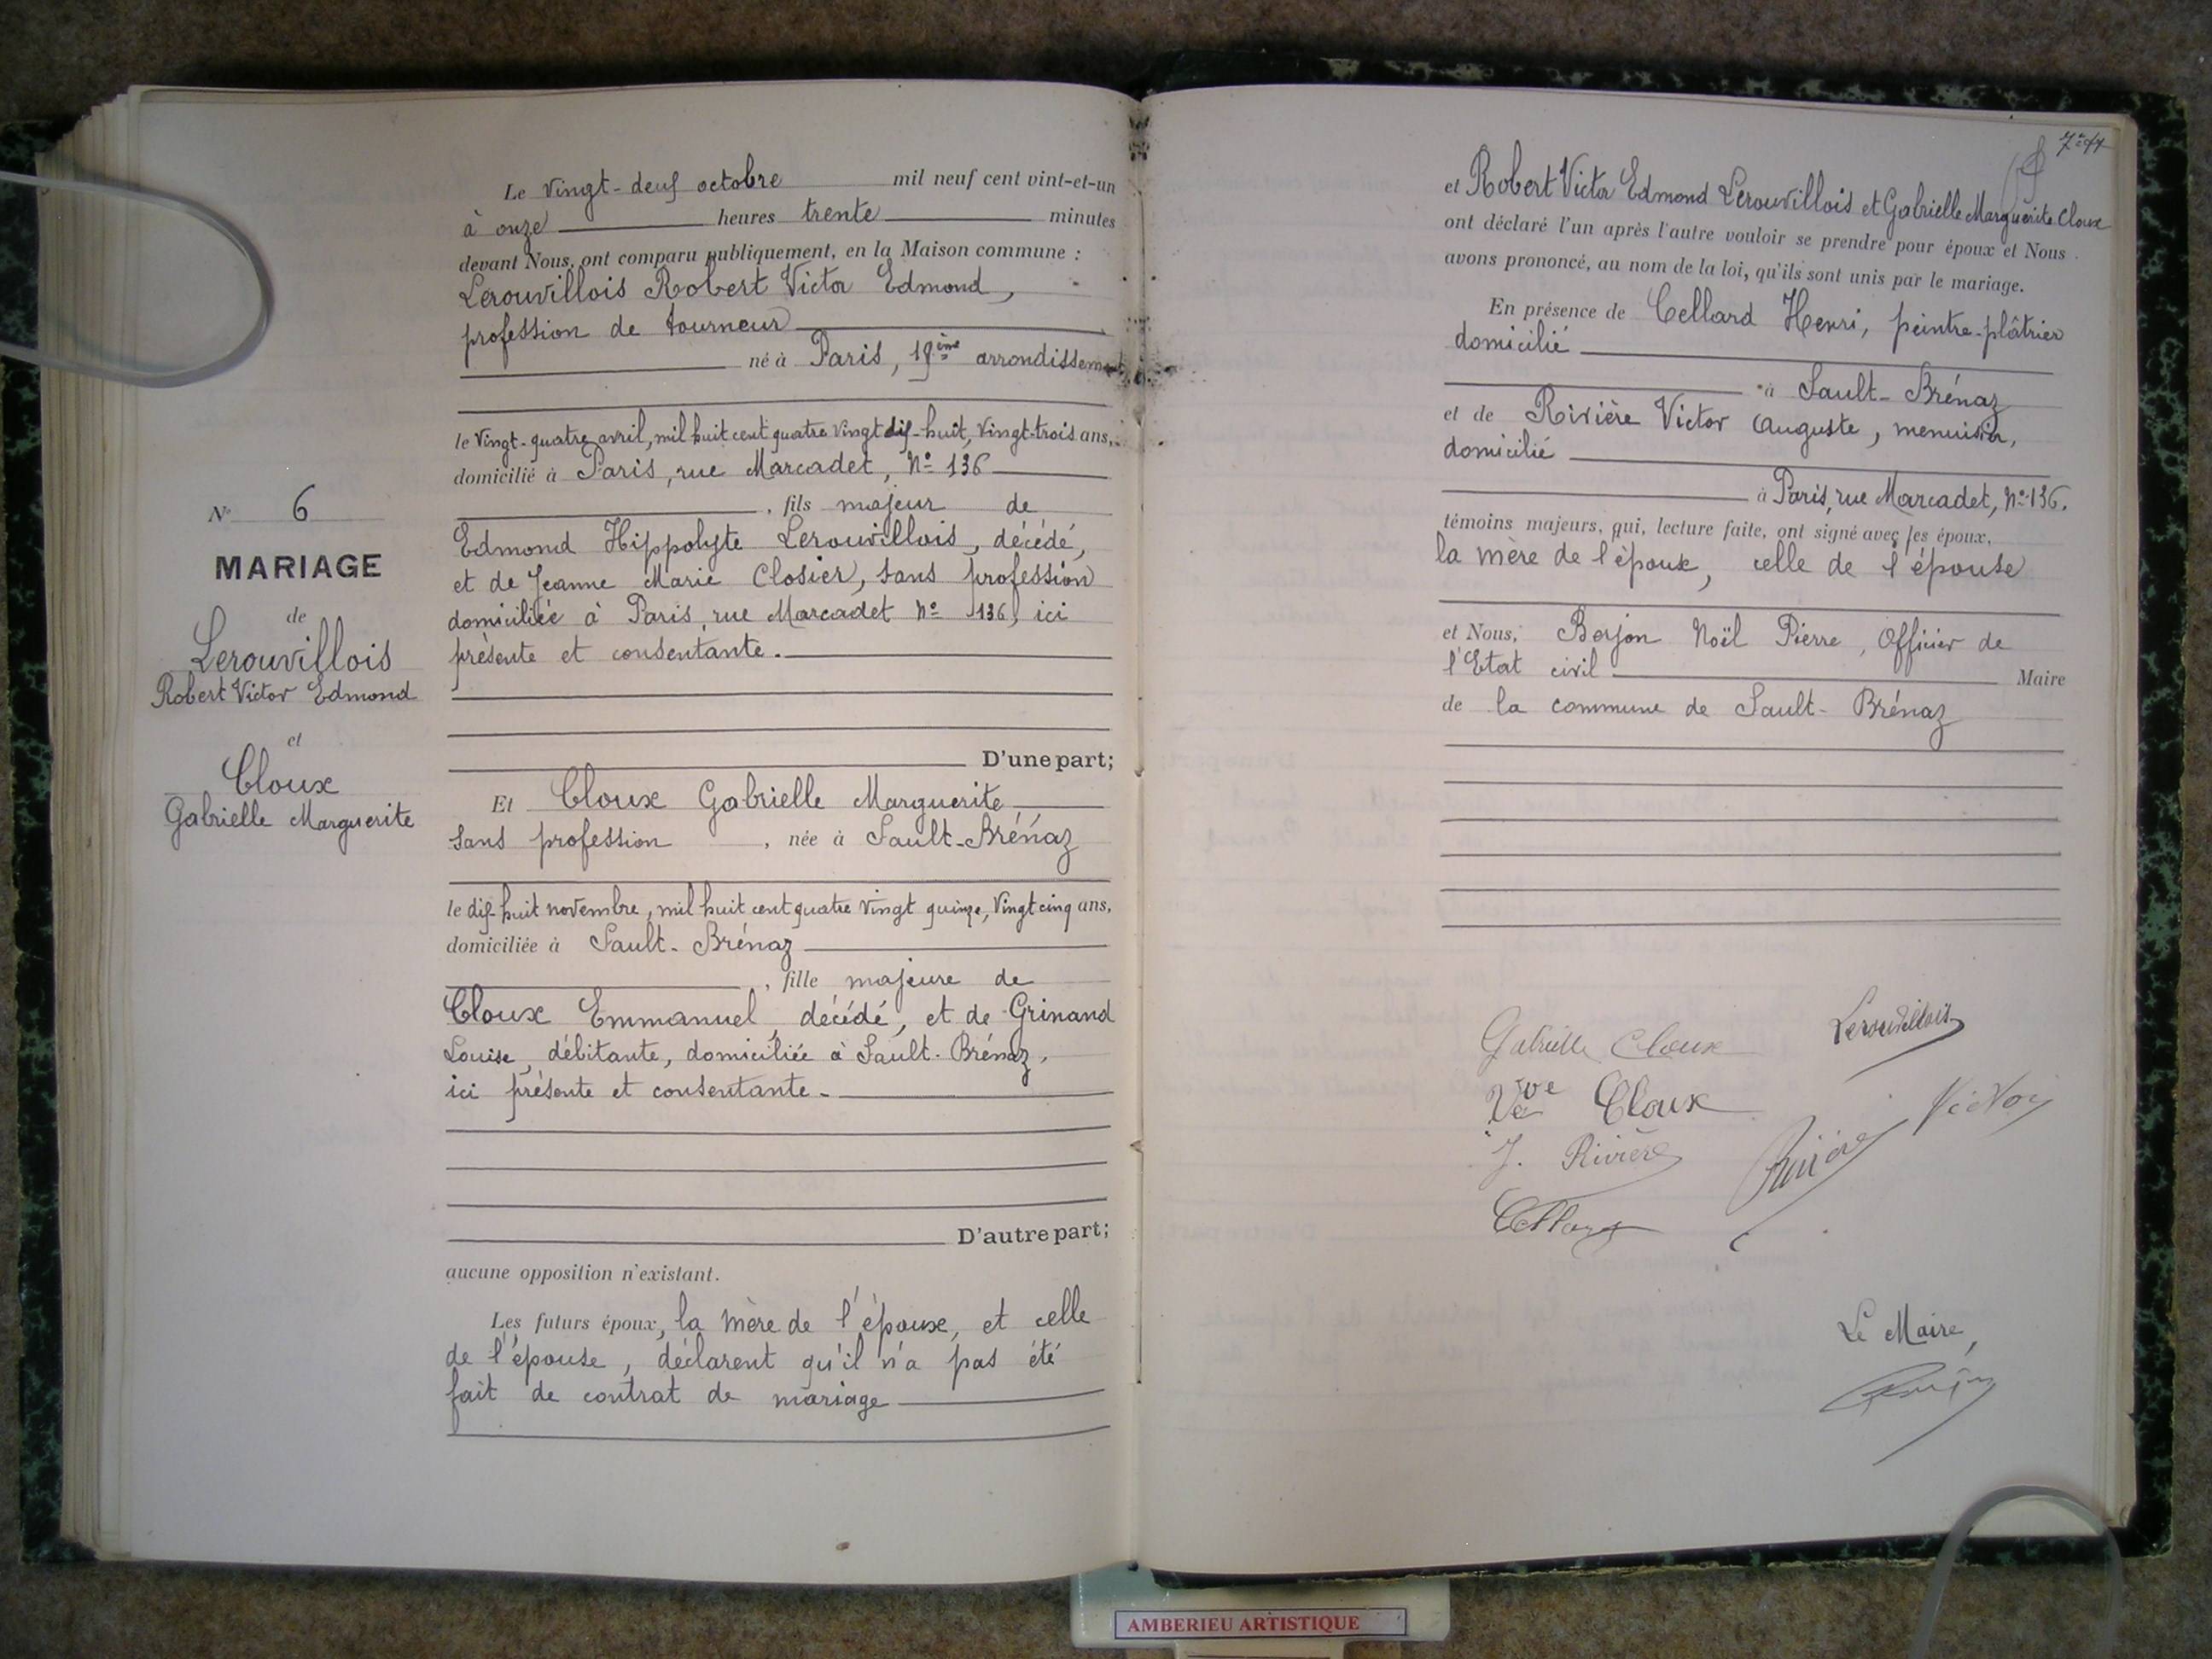 N° 6
MARIAGE
de
Lerouvillois
Robert Victor Edmond
et
Cloux
Gabrielle Marguerite
Le Vingt-deux octobre mil neuf cent vint-et-un
à onze heures trente minutes
devant Nous, ont comparu publiquement, en la Maison commune :
Lerouvillois Robert Victor Edmond,
profession de tourneur
né à Paris, 18ème arrondissement
le Vingt-quatre avril, mil huit cent quatre vingt dix-huit, Vingt-trois ans,
domicilié à Paris, rue Marcadet, N° 136
, fils majeur de
Edmond Hippolyte Lerouvillois, décédé,
et de Jeanne Marie Closier, sans profession
domiciliée à Paris, rue Marcadet N° 136, ici
présente et consentante.
D'une part;
Et Cloux Gabrielle Marguerite
sans profession, née à Sault-Brénaz
le dix-huit novembre, mil huit cent quatre vingt quinze, Vingt cinq ans,
domiciliée à Sault-Brénaz
, fille majeure de
Cloux Emmanuel, décédé, et de Grinand
Louise, débitante, domiciliée à Sault-Brénaz,
ici présente et consentante.
D'autre part;
aucune opposition n'existant.
Les futurs époux, la mère de l'époux, et celle
de l'épouse, déclarent qu'il n'a pas été
fait de contrat de mariage
et Robert Victor Edmond Lerouvillois et Gabrielle Marguerite Cloux
ont déclaré l'un après l'autre vouloir se prendre pour époux et Nous
avons prononcé, au nom de la loi, qu'ils sont unis par le mariage.
En présence de Cellard Henri, peintre-plâtrier
domicilié
à Sault-Brénaz
et de Rivière Victor Auguste, menuisier,
domicilié
à Paris, rue Marcadet, N° 136.
témoins majeurs, qui, lecture faite, ont signé avec les époux,
la mère de l'époux, celle de l'épouse
et Nous, Borjon Noël Pierre, Officier de
l'Etat civil Maire
de la commune de Sault-Brénaz
Gabrielle Cloux Lerouvillois
Vve Cloux
J. Rivière Rivière Victor
Cellard
Le Maire,
AMBERIEU ARTISTIQUE